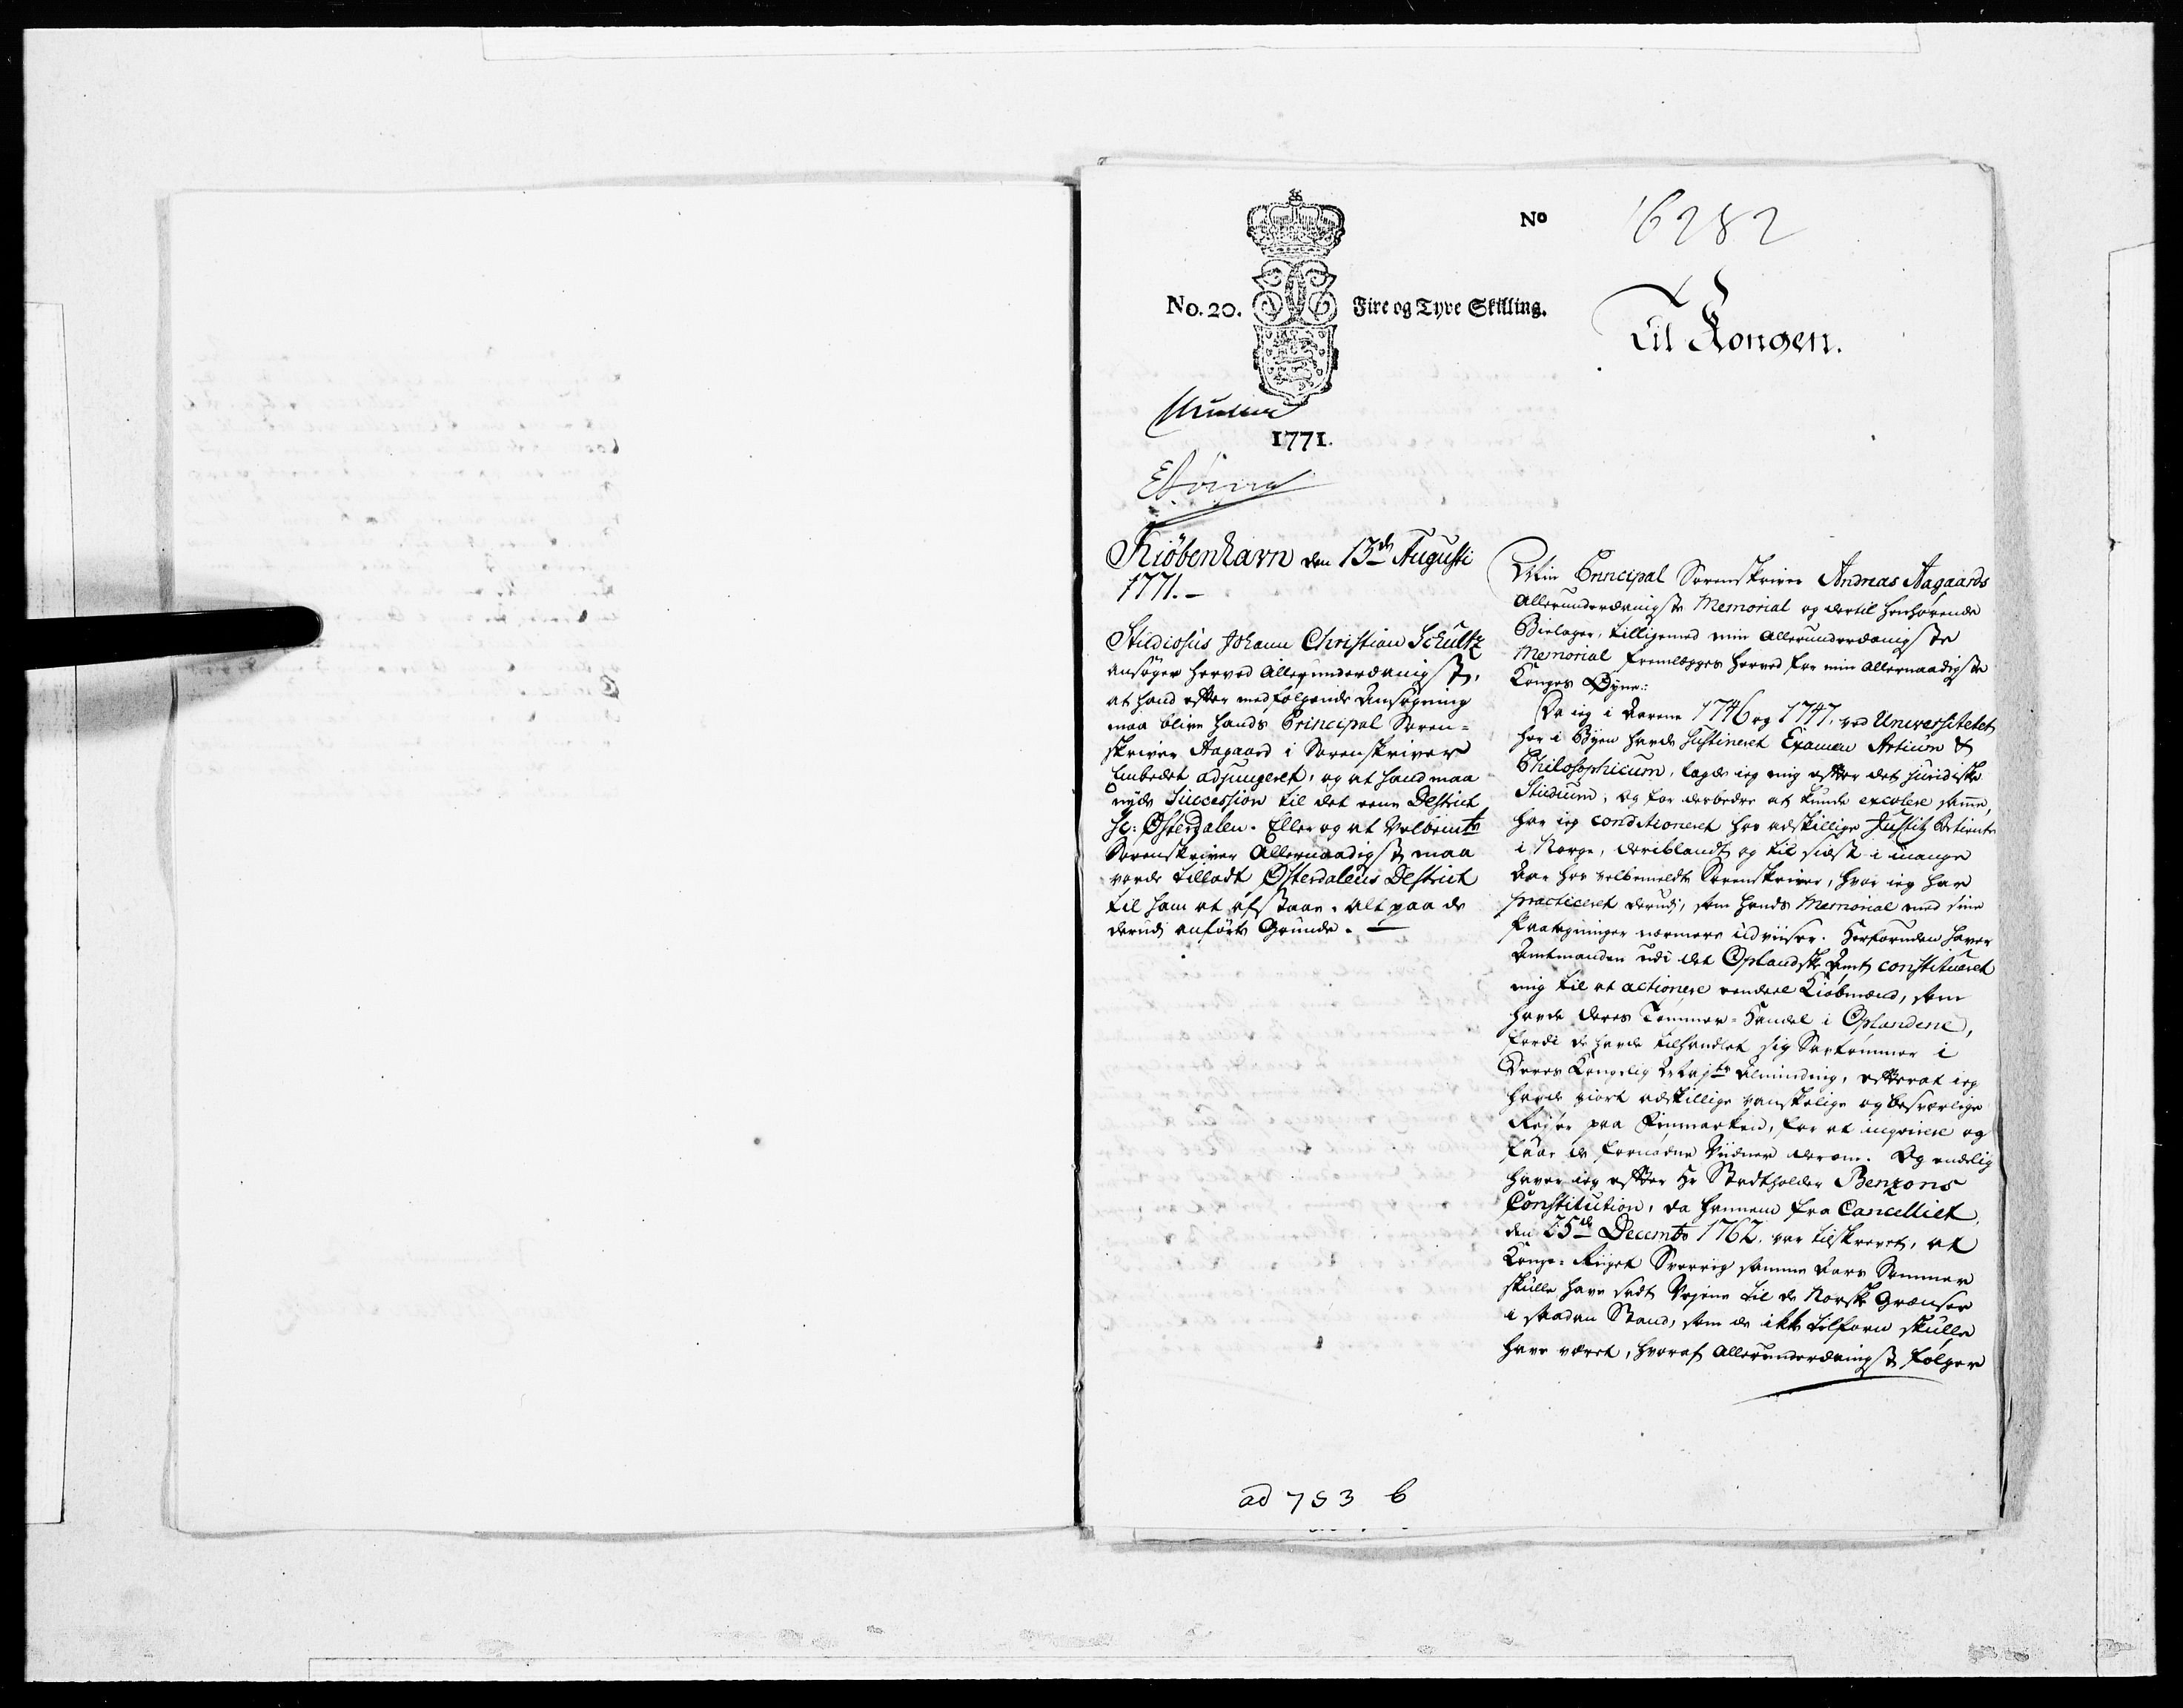 No 16282
No. 20. Fire og Tyve Skilling.
Til Kongen.
1771.
Kiøbenhavn den 13de Augusti
1771.
Studiosus Johann Christian Schultz
ansøger herved Allerunderdanigst,
at hand efter medfølgende Ansøgning
maa blive hands Principal Soren=
skriver Aagaard i Sorenskriver
Embedet adjungeret, og at hand maa
nyde Succession til det eene Destrict
sc: Østerdalen. Eller og at Velbemte
Sorenskriver Allernaadigst maa
vorde tilladt Østerdalens Destrict
til ham at afstaae. Alt paa de
derudj anførte Grunde.
Min Principal Sorenskriver Andreas Aagaards
Allerunderdanigste Memorial og dertil henhørende
Bielager, tilligemed min Allerunderdanigste
Memorial fremlægges herved for min Allernaadigste
Konges Øyne:
Da ieg i Aarene 1746 og 1747. ved Universitetet
her i Byen havde sustineret Examen Artium &
Philosophicum, lagde ieg mig efter det juridiske
Studium, og for derbedre at kunde excolere samme,
har ieg conditioneret hos adskillige Justitz Betiente
i Norge, deriblandt og til sidst i mange
Aar hos velbemeldte Sorenskriver, hvor ieg har
practiceret derudj, som hands Memorial med sine
paategninger nærmere udviiser. Herforuden haver
Amtmanden udi det Oplandske Amt constitueret
mig til at actionere endeel Kiøbmænd, som
havde deres Tømmer=Handel i Oplandene,
fordi de havde tilhandlet sig Saugtømmer i
Deres Kongelig Majts Alminding, efterat ieg
havde giort adskillige vanskelige og besværlige
Rejser paa Finmarken, for at inqvirere og
faae de fornødne Vidner derom. Og endelig
haver ieg efter Hr Stadtholder Benzons
Constitution, da hannem fra Cancelliet
den 25de Decembr 1762. var tilskrevet, at
Konge=Riiget Sverrig samme Aars Sommer
skulle have sadt Vejene til de Norske Grænser
i saadan Stand, som de ikke tilforn skulle
have været, hvoraf Allerunderdanigst følger
ad 753 b